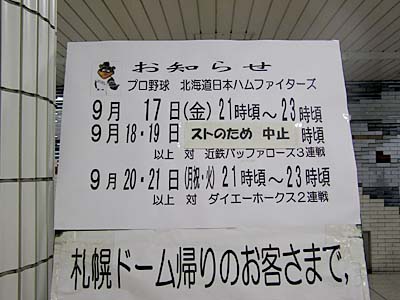 お知らせ
プロ野球 北海道日本ハムファイターズ
9月 17日(金)21時頃～23時頃
9月18・19日 ストのため 中止 時頃
以上 対 近鉄バッファローズ3連戦
9月20・21日(月祝・火)21時頃～23時頃
以上 対 ダイエーホークス2連戦
札幌ドーム帰りのお客さまで,